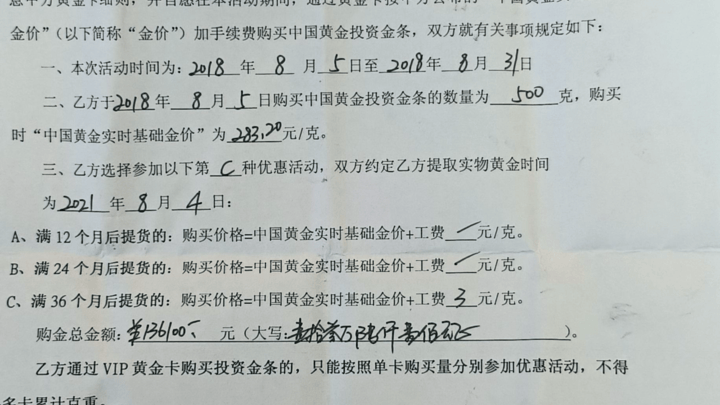 金价”（以下简称“金价”）加手续费购买中国黄金投资金条，双方就有关事项规定如下：
一、本次活动时间为：2018 年 8 月 5 日至 2018 年 8 月 31 日
二、乙方于 2018 年 8 月 5 日购买中国黄金投资金条的数量为 500 克，购买
时“中国黄金实时基础金价”为 元/克。
三、乙方选择参加以下第 C 种优惠活动，双方约定乙方提取实物黄金时间
为 2021 年 8 月 4 日：
A、满 12 个月后提货的：购买价格=中国黄金实时基础金价+工费 元/克。
B、满 24 个月后提货的：购买价格=中国黄金实时基础金价+工费 元/克。
C、满 36 个月后提货的：购买价格=中国黄金实时基础金价+工费 3 元/克。
购金总金额：¥136100 元（大写：壹拾叁万陆仟壹佰元 ）。
乙方通过 VIP 黄金卡购买投资金条的，只能按照单卡购买量分别参加优惠活动，不得
多卡累计克重。